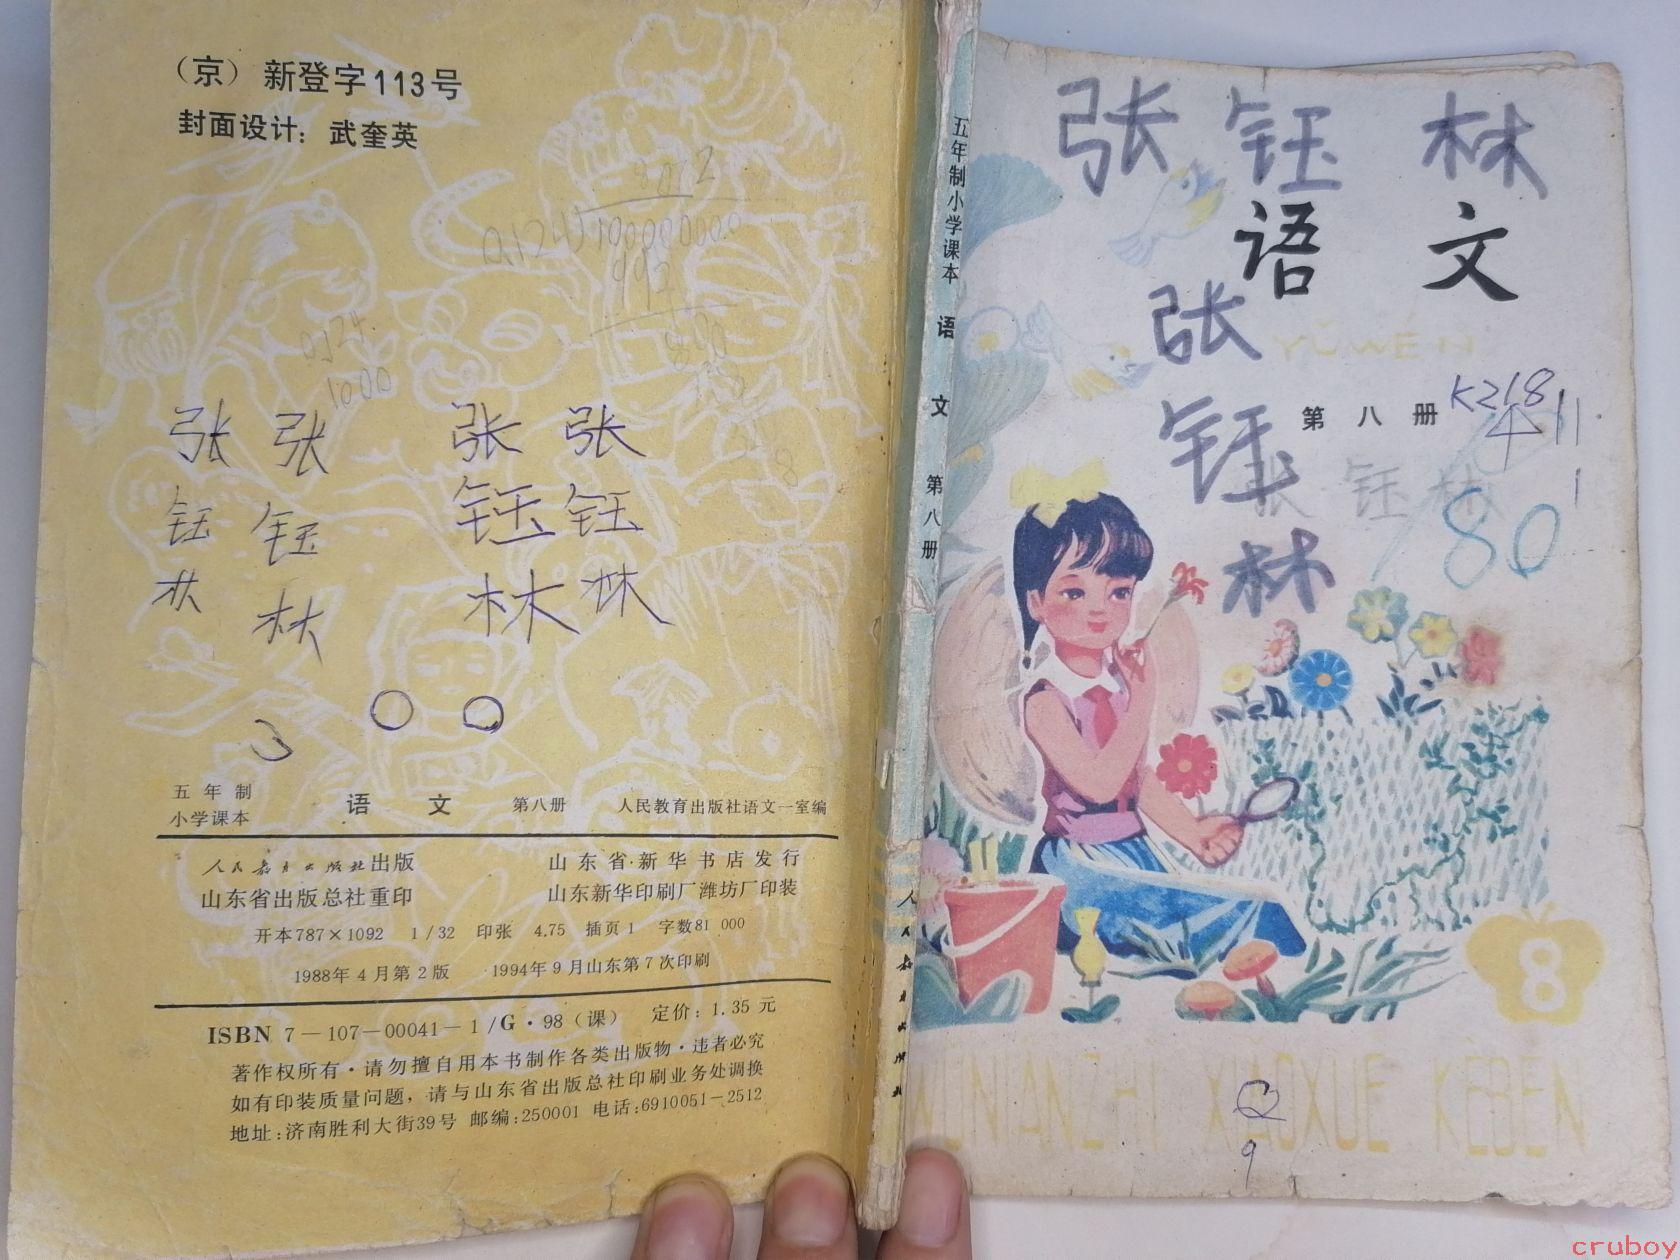 （京）新登字113号
封面设计：武奎英
8012
0.124
1000
张 张 张 张
钰 钰 钰 钰
林 林 林 林
五年制
小学课本
语 文 第八册 人民教育出版社语文一室编
人民教育出版社出版 山东省新华书店发行
山东省出版总社重印 山东新华印刷厂潍坊厂印装
开本787×1092 1/32 印张 4.75 插页1 字数81 000
1988年4月第2版 1994年9月山东第7次印刷
ISBN 7—107—00041—1/G·98（课） 定价：1.35元
著作权所有·请勿擅自用本书制作各类出版物·违者必究
如有印装质量问题，请与山东省出版总社印刷业务处调换
地址:济南胜利大街39号 邮编:250001 电话:6910051－2512
五年制小学课本 语 文 第八册 人民教育出版社
张 钰 林
语 文
YǓWÉN
张
钰
林
第八册
K218
张 钰 林
80
8
WǓNIÁNZHÌ XIǍOXUÉ KÈBĚN
9
cruboy